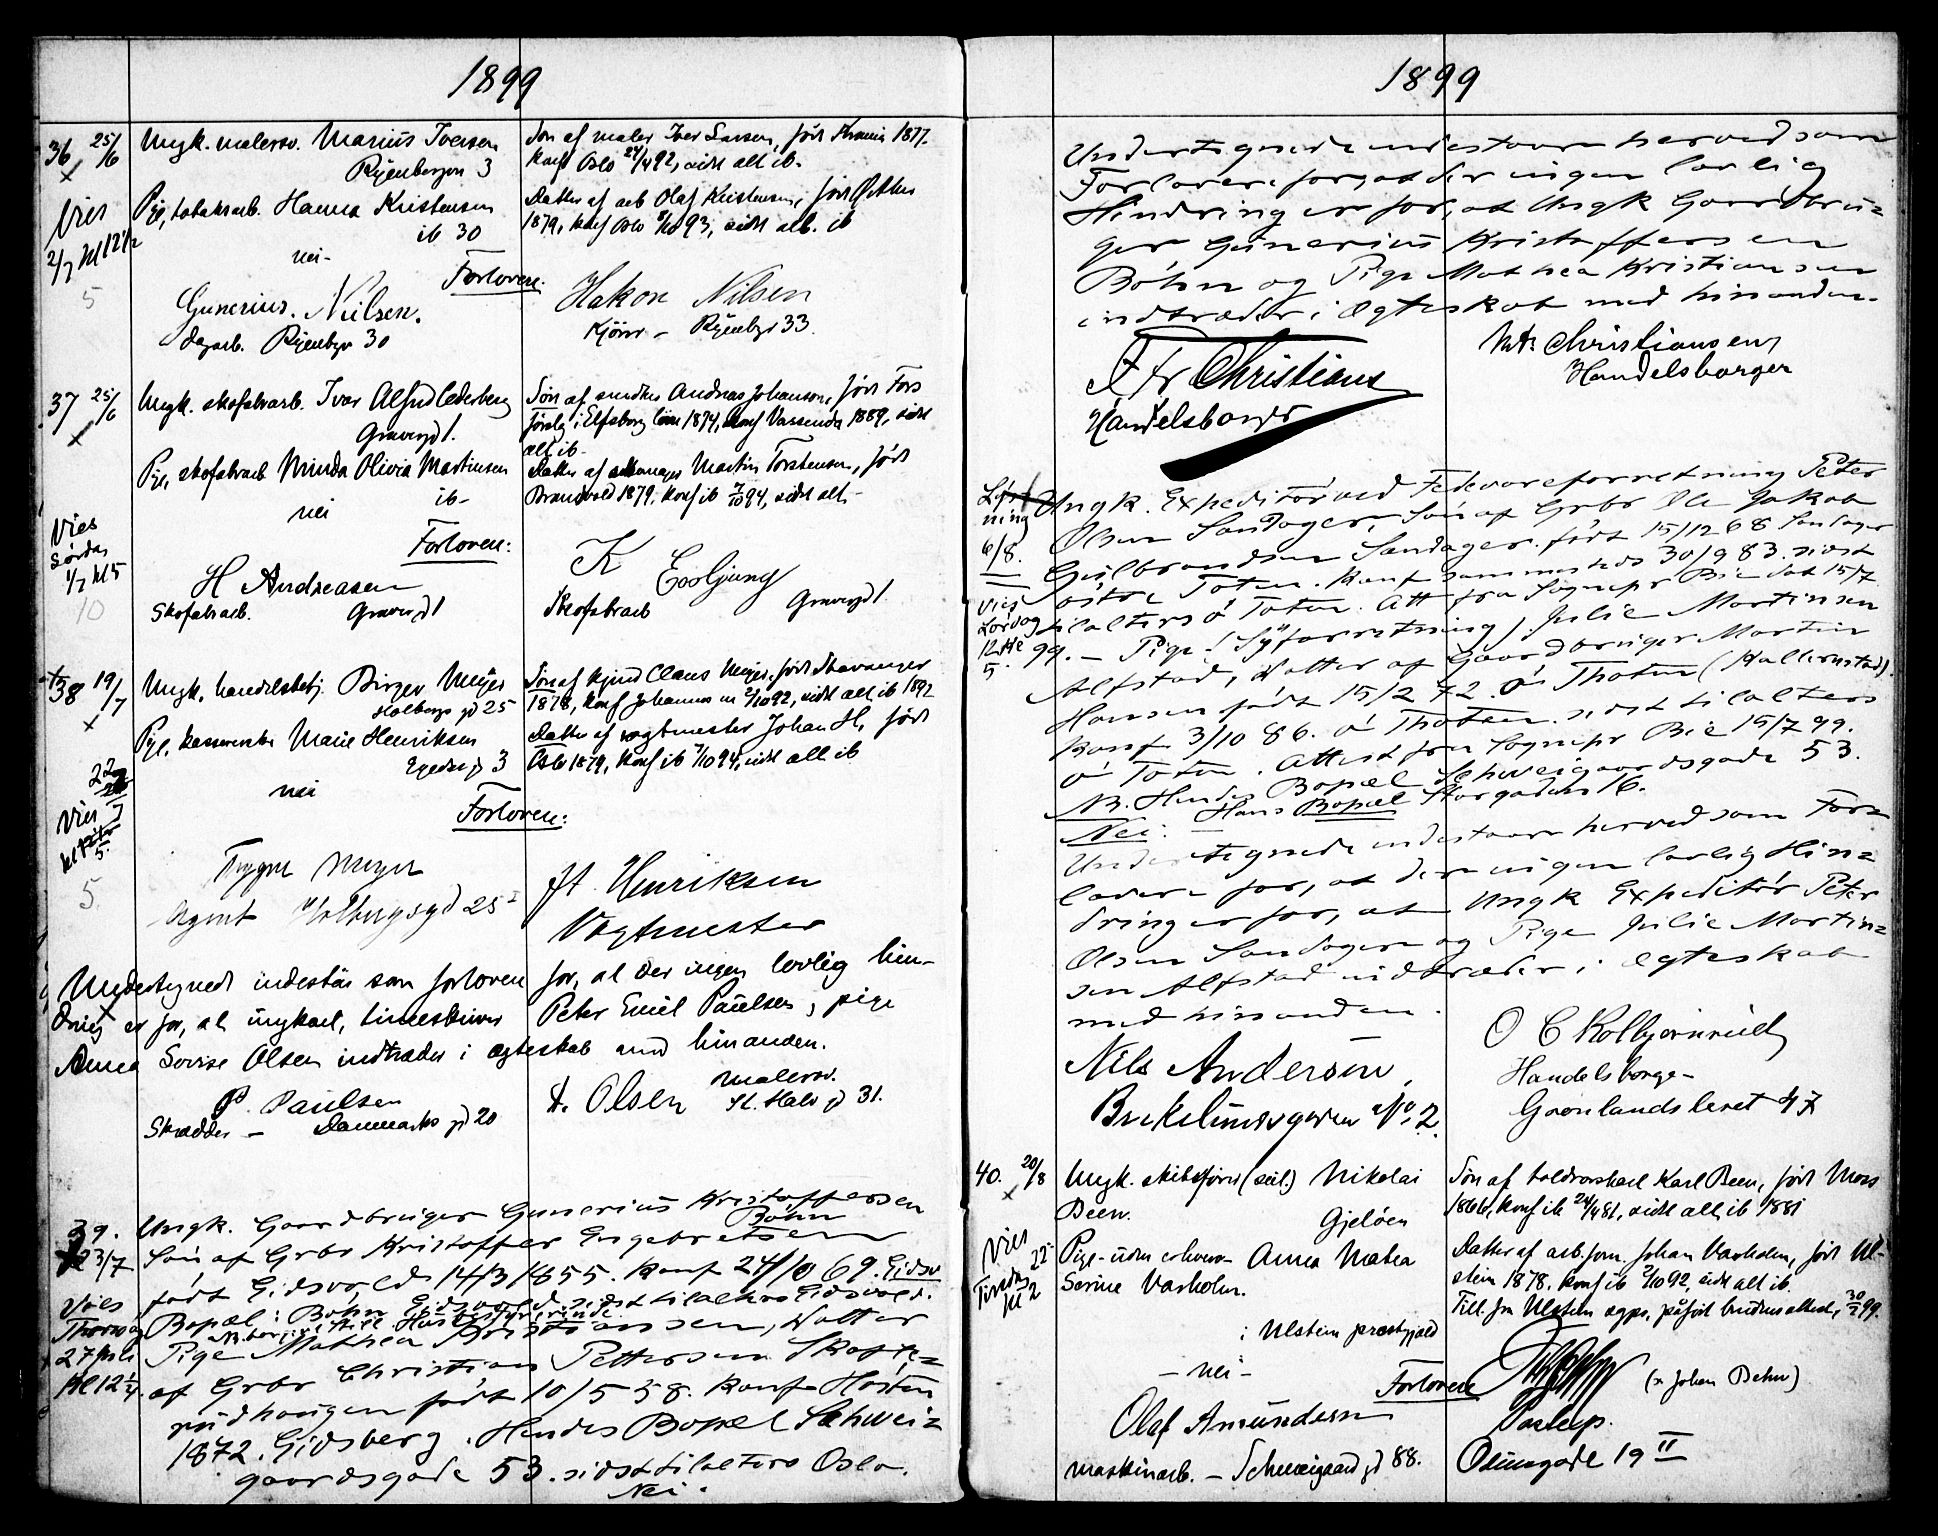 1899
36 25/6 Ungk. malersv. Marius Iversen
Ryenbergvn 3
Søn af maler Iver Larsen, født Krania 1877.
Konf Oslo 24/4 92, sidst alt. ib.
Vies 2/7 kl 12 1/2
5
Pige, tobaksarb. Hanna Kristensen
ib 30
Datter af arb Olaf Kristensen, født
1879, konf Oslo /10 93, sidst alt. ib
nei-
Forlovere:
Gunerius Nilsen.
dagarb. Ryenbgv 30
Hakon Nilsen
Kjører - Ryenbgv 33.
37 25/6 Ungk. skofabrarb. Ivar Alfred Cederberg
Gravergd 1.
Søn af Andreas Johanson, født Fors
i Elfsborg län 1874, konf Vassenda 1889, sidst
alt. ib-
Pige, skofabrarb Minda Olivia Martinsen
ib-
Datter af Martin Torstensen, født
Brandvold 1879, konf ib 7/10 94, sidst alt.-
nei
Vies
Lørdag
1/7 kl 5
10
Forlovere:
H Andreasen
Skofabrarb. Gravergd 1
K
Skofabrarb Gravergd 1.
38 19/7 Ungk. handelsbetj. Birger Meyer
Holbergs gd 25
Søn af Claus Meyer, født Stavanger
1878, konf Johannes m 2/10 92, sidst alt ib 1892
Pige, Marie Henriksen
Egedes gd 3
Datter af vogtmester Johan H., født
Oslo 1879, konf ib 7/10 94, sidst alt ib
nei
22
Vies
kl
5.
5.
Forlovere:
Trygve Meyer
Agent Holbergsgd 25 I
Jt. Henriksen
Vogtmester
Undertegnede indestår som forlovere for, at der ingen lovlig hin-
dring er for, at ungkarl, Peter Emil Paulsen, pige
Anna Lovise Olsen indtræder i ægteskab med hinanden.
P. Paulsen
Skrædder - Danmarks gd 20
A. Olsen malersv.
St. Halv gd 31.
39. Ungk. Gaardbruger Gunerius Kristoffersen
Bøhn
23/7 Søn af Grbr Kristoffer Engebretsen
født Eidsvold 14/3 1855. Konf 24/10 69. Eidsv
Bopæl: Bøhn Eidsvold sidst tilalters Eidsvold.
Vies
Thorsdag
27 Juli
Kl 12 1/4.
Pige Mathea Kristiansen, Datter
af Grbr Christian Pettersen Skøfte=
rudhaugen født 10/5 58. Konf Høsten
1872. Eidsberg. Hendes Bopæl Schwei=
gaardsgade 53. sidst tilalters Oslo.
Nei.
1899
Undertegnede indestaar herved som
Forlovere for, at der ingen lovlig
Hindring er for, at Ungk Gaardbru=
ger Gunerius Kristoffersen
Bøhn og Pige Mathea Kristiansen
indtræder i Ægteskab med hinanden.
Fr Christians
Handelsborger
Christiansen
Handelsborger
Lysning
6/8.
Ungk. Expeditør ved Fedevareforretning Peter
Olsen Sandager, Søn af Grbr Ole Jakob
Gulbrandsen Sandager. født 15/12 68 Sandager
østre Toten. Konf sammesteds 30/9 83. sidst
tilalters ø Toten. Att fra Sognepr Bie dat 15/7
99. - Pige (Syforretning) Julie Martinsen
Vies
Lørdag
12te
5.
Alfstad, Datter af Gaardbruger Martin
Hansen født 15/2 72. Ø Thoten
Konf 3/10 86. Ø Thoten. sidst tilalters
Ø Toten. Attest fra Sognepr Bie 15/7 99.
NB. Hendes Bopæl Schweigaardsgade 53.
Hans Bopæl Storgaden 16.
Nei.
Undertegnede indestaar herved som For=
lovere for, at der ingen lovlig Hin=
dring er for, at Ungk Expeditør Peter
Olsen Sandager og Pige Julie Martin=
sen Alfstad indtræder i Ægteskab
med hinanden.
Nils Andersen,
No. 2.
O C Kolbjørnrud
Handelsborge-
Grønlandsleret 47
40. 20/8 Ungk. skibsfører (seil.) Nikolai
Been.
Gjeløen
Søn af toldvorskarl Karl Been, født Moss
1866, konf ib 24/4 81, sidst alt ib 1881
Vies 22
Tirsdag
kl 2
Pige - uden erhverv - Anna Mathea
Sorine Varholm.
i Ulstein præstegjæld
Datter af arb.form. Johan Varholm, født Ul-
stein 1878, konf ib 2/10 92, sidst alt ib.
Till. fra Ulstein sogpr. påført brudens attest, 30/7 99.
- nei -
Forlovere
Olaf Amundsen
maskinarb. - Schweigaardsgd 88.
(x Johan Behn)
Oslogade 19 II